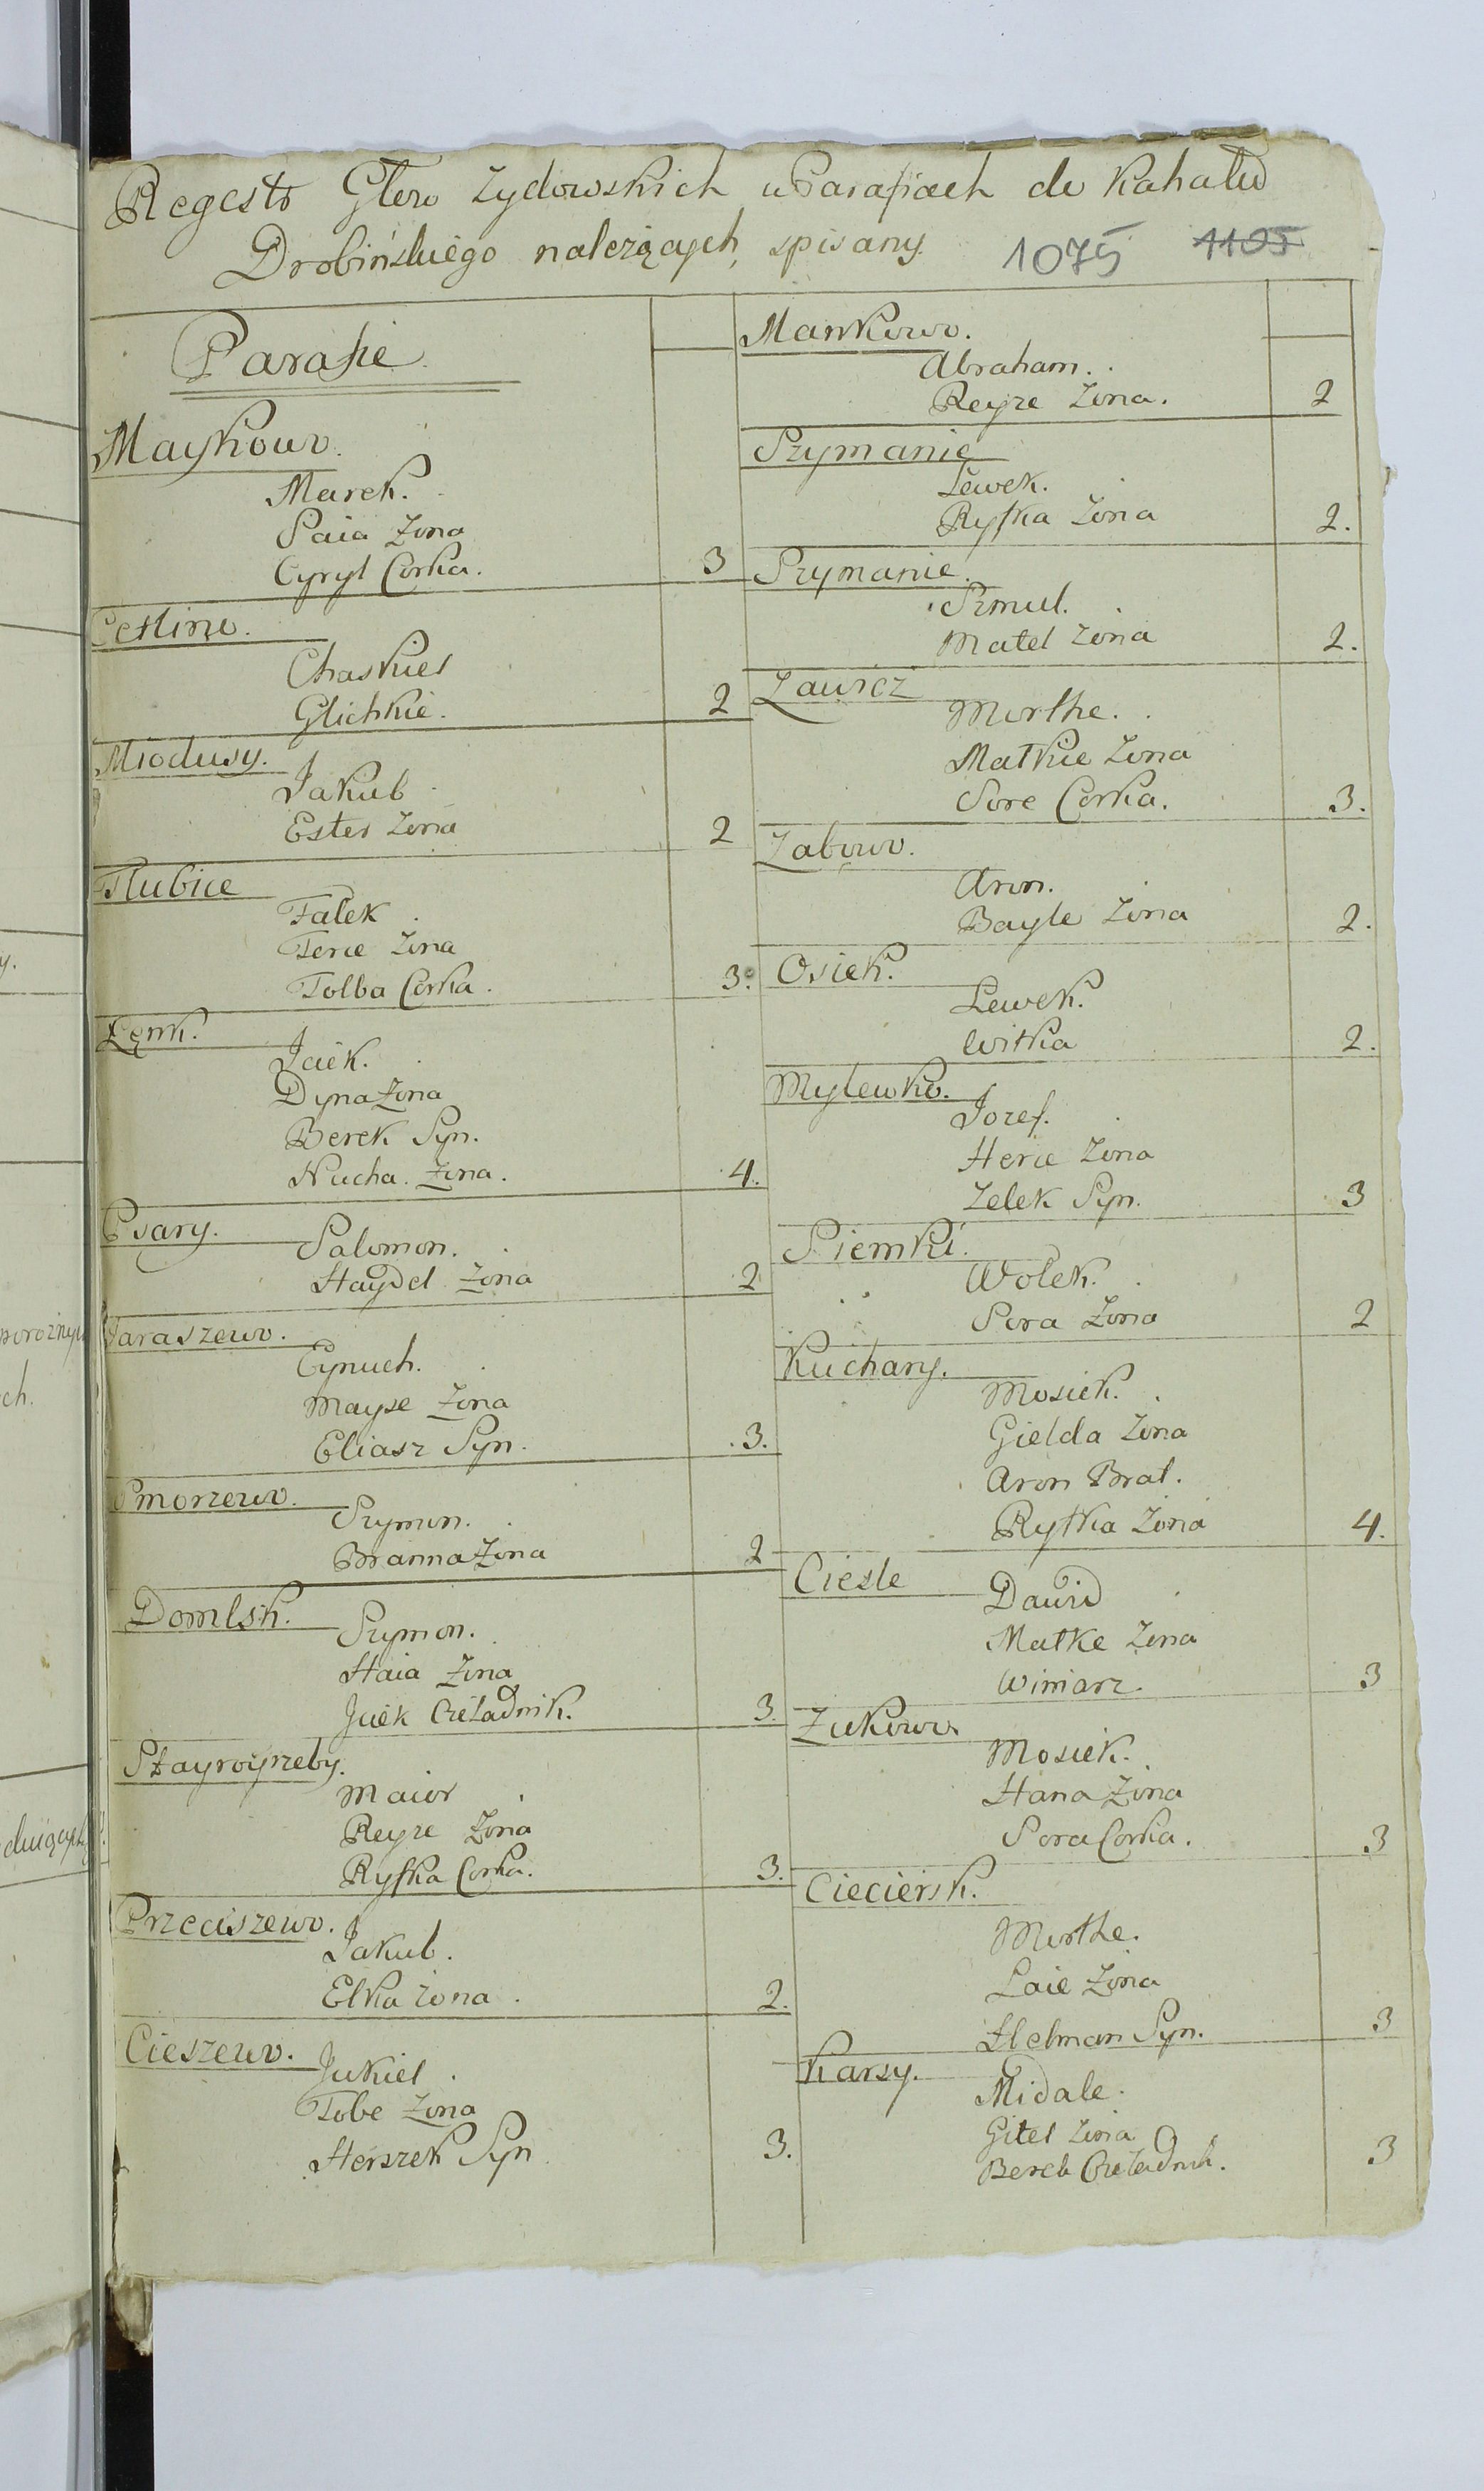 Regestr Głow Zydowskich w Parafiach do Kahału
Drobińskiego nalezących, spisany.
1075 1105
Parafie
Maykowo.
Marek.
Paia Zona
Cyryl Corka. 3
Cetlino.
Chaskiel
Glichkie. 2
Miodusy.
Jakub
Ester Zona 2
Słubice
Falek
Ferie Zona
Tolba Corka. 3.
Łęnk.
Jcick.
Dyna Zona
Berek Syn.
Nucha. Zona. 4.
Psary.
Salomon.
Haydel Zona 2
Jaraszewo.
Eynuch.
Mayse Zona
Eliasz Syn. 3.
Smorzewo.
Szymon.
Branna Zona 2
Domlsk.
Szymon.
Haia Zona
Jcek Czeladnik. 3.
Stayroyzeby.
Maior
Reyze Zona
Ryfka Corka. 3.
Przeciszewo.
Jakub.
Elka zona. 2.
Cieszewo.
Jukiel
Tobe Zona
Herszek Syn 3.
Mankowo.
Abraham.
Reyze Zona. 2
Szymanie
Lewek.
Ryfka Zona 2.
Szymanie.
Szmul.
Matel Zona 2.
Zawicz
Morthe.
Matkie Zona
Sore Corka. 3.
Zabowo.
Aron.
Bayle Zona 2.
Osiek.
Lewek.
Witka 2.
Mylewko.
Jozef.
Herie Zona
Zelek Syn. 3
Siemki.
Wolek.
Sora Zona 2
Kuchary.
Mosiek.
Gielda Zona
Aron Brat.
Ryfka Zona 4.
Ciesle
Dawid
Matke Zona
Winiarz. 3
Zukowo.
Mosiek.
Hana Zona
Sora Corka. 3
Cieciersk.
Morthe.
Laie Zona
Helman Syn. 3
Karsy.
Midale.
Gitel Zona
Berek Czeladnik. 3